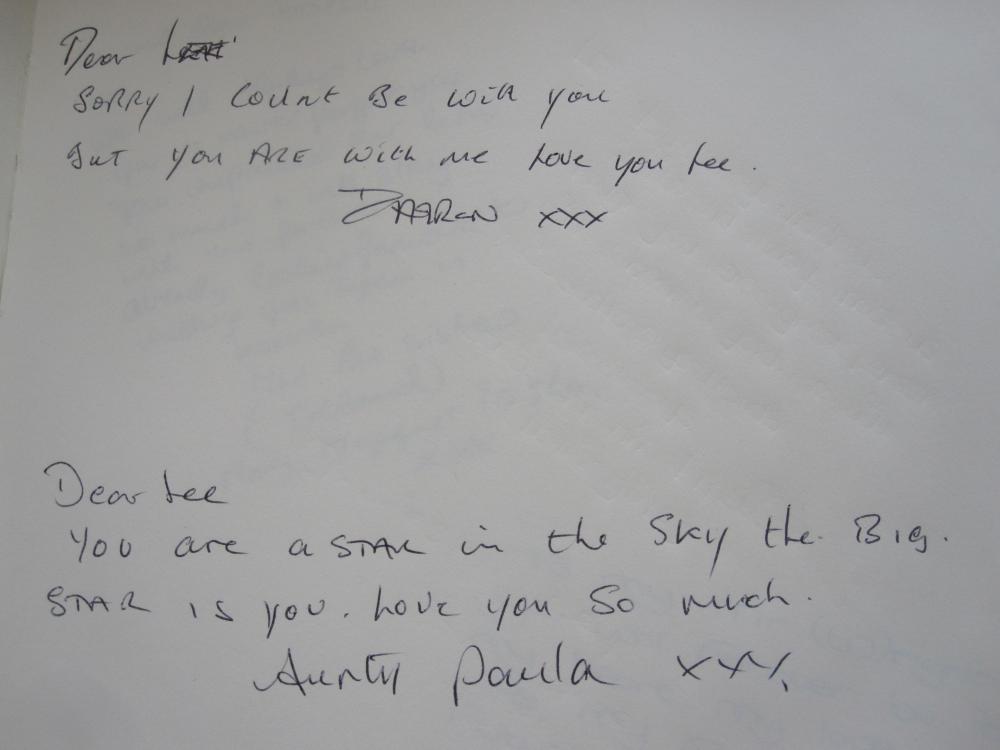 Dear
SORRY I COUNT BE WITH YOU
BUT YOU ARE WITH ME LOVE YOU LEE.
DAAREN XXX
Dear Lee
YOU are a STAR in the SKY the. BIG.
STAR IS YOU. LOVE YOU SO much.
Aunty Paula XXX